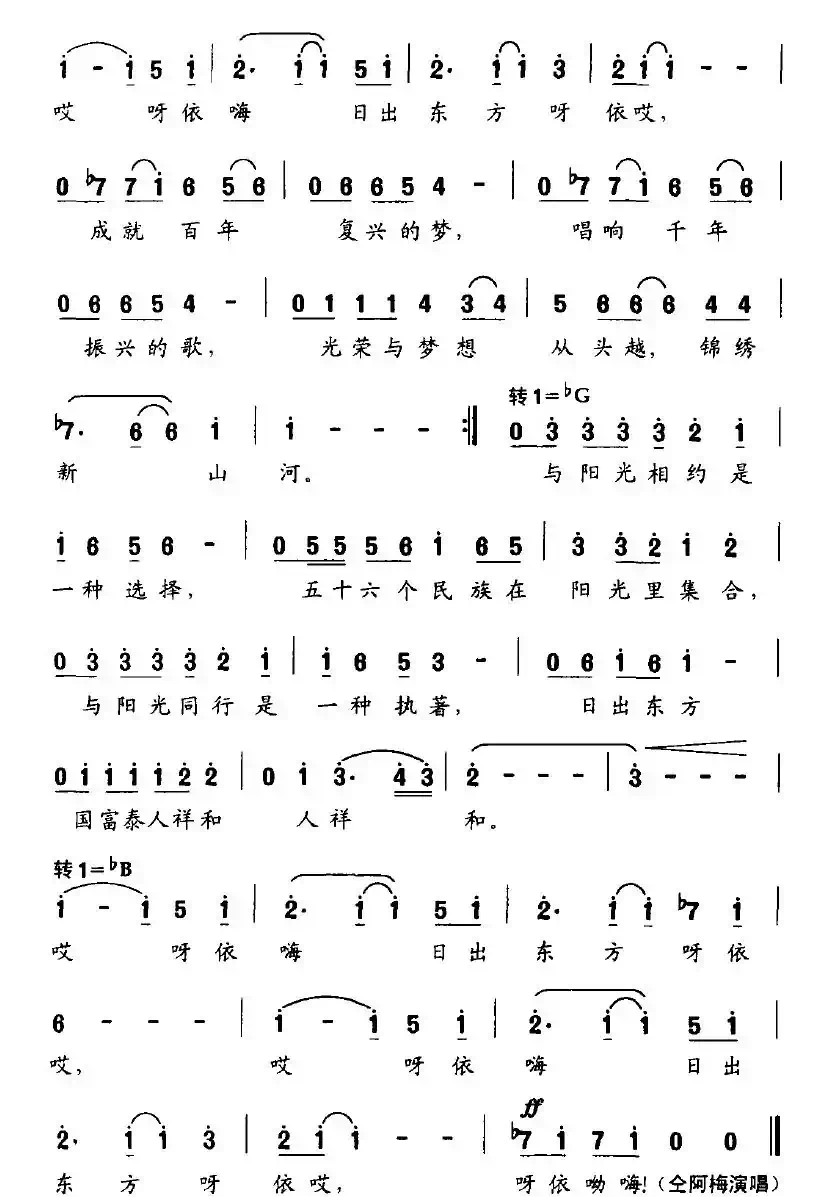 i - i 5 i | 2· i i 5 i | 2· i i 3 | 2 i i - - |
哎 呀依嗨 日出东方呀依哎,
0 ♭7 7 i 6 5 6 | 0 6 6 5 4 - | 0 ♭7 7 i 6 5 6 |
成就百年 复兴的梦, 唱响千年
0 6 6 5 4 - | 0 1 1 1 4 3 4 | 5 6 6 6 4 4 |
振兴的歌, 光荣与梦想 从头越, 锦绣
转1=♭G
♭7· 6 6 i | i - - - :‖ 0 3 3 3 3 2 i |
新 山 河。 与阳光相约是
i 6 5 6 - | 0 5 5 5 6 i 6 5 | 3 3 2 i 2 |
一种选择, 五十六个民族在 阳光里集合,
0 3 3 3 3 2 i | i 6 5 3 - | 0 6 i 6 i - |
与阳光同行是 一种执著, 日出东方
0 i i i i 2 2 | 0 i 3· 4 3 | 2 - - - | 3 - - - |
国富泰人祥和 人祥 和。
转1=♭B
i - i 5 i | 2· i i 5 i | 2· i i ♭7 i |
哎 呀依 嗨 日出 东方呀依
6 - - - | i - i 5 i | 2· i i 5 i |
哎, 哎 呀依 嗨 日出
ff
2· i i 3 | 2 i i - - | ♭7 i 7 i 0 0 ‖
东方呀 依哎, 呀依呦嗨!(仝阿梅演唱)